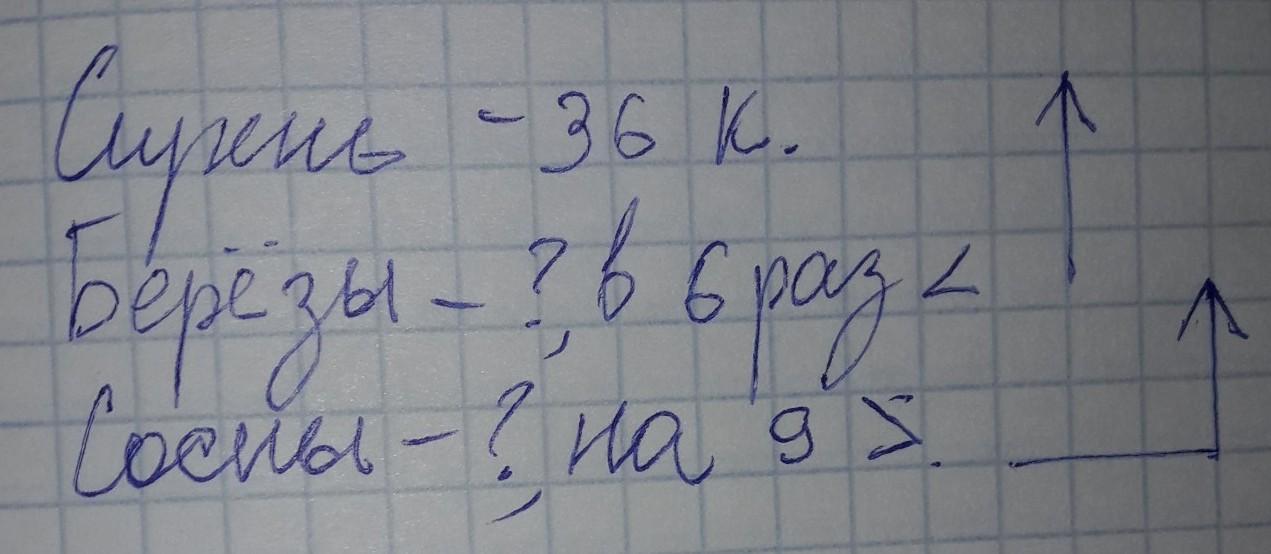 - 36 к.
Берёзы - ?, в 6 раз <
Сосны - ?, на 9 >.